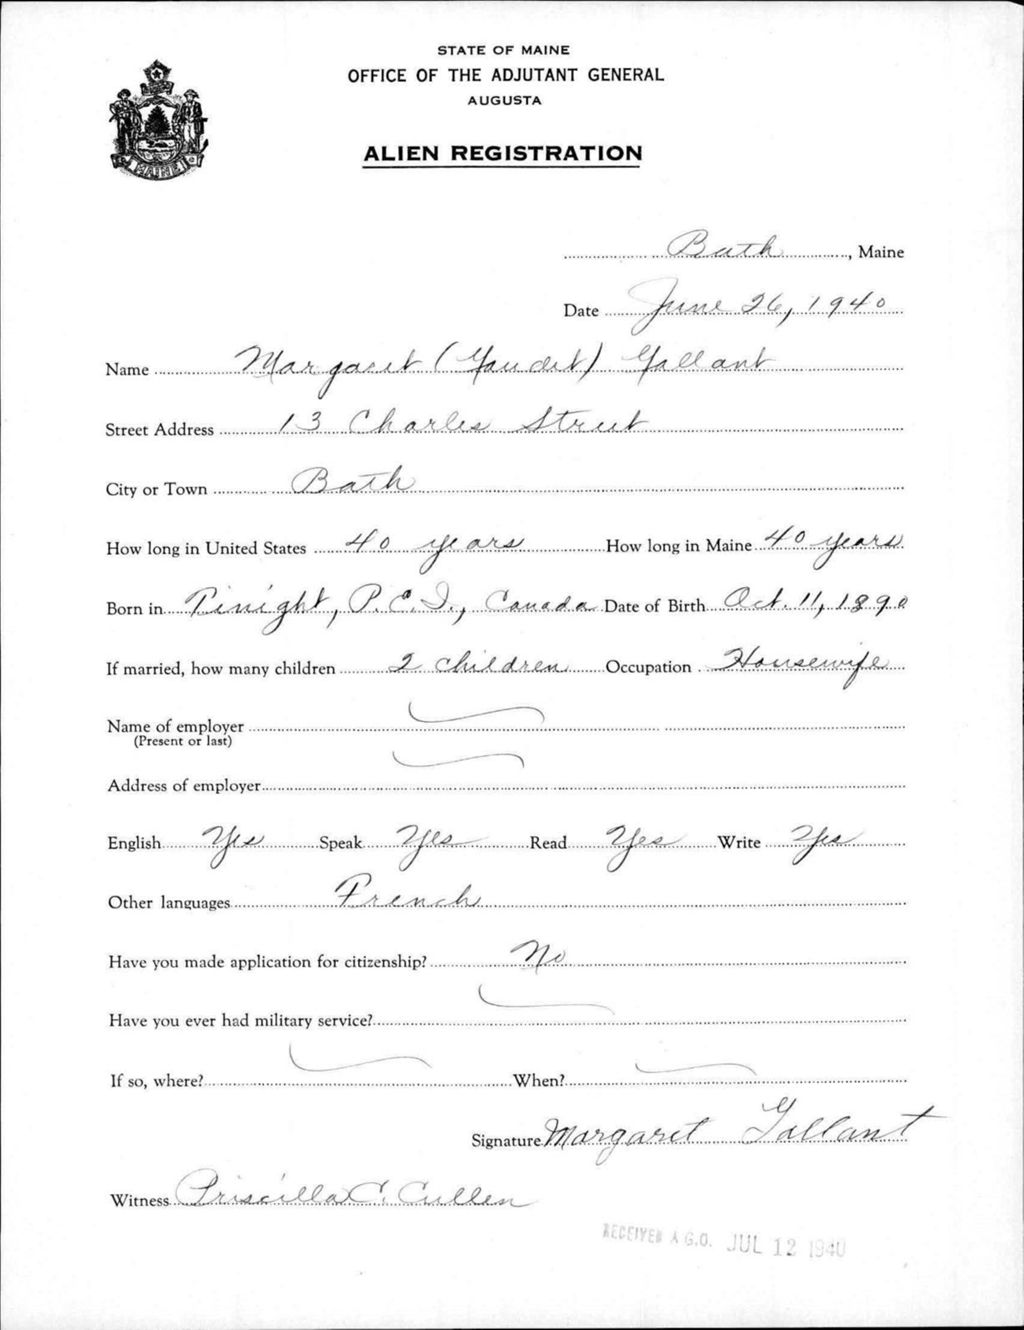 STATE OF MAINE
OFFICE OF THE ADJUTANT GENERAL
AUGUSTA
MAINE
ALIEN REGISTRATION
Bath, Maine
Date June 26, 1940
Name Margaret (Gaudet) Gallant
Street Address 13 Charles Street
City or Town Bath
How long in United States 40 years How long in Maine 40 years
Born in Tinight, P.E.I., Canada Date of Birth Oct. 11, 1890
If married, how many children 2 children Occupation Housewife
Name of employer
(Present or last)
Address of employer
English Yes Speak Yes Read Yes Write Yes
Other languages French
Have you made application for citizenship? No
Have you ever had military service?
If so, where? When?
Signature Margaret Gallant
Witness Priscilla C. Cullen
RECEIVED A.G.O. JUL 12 1940